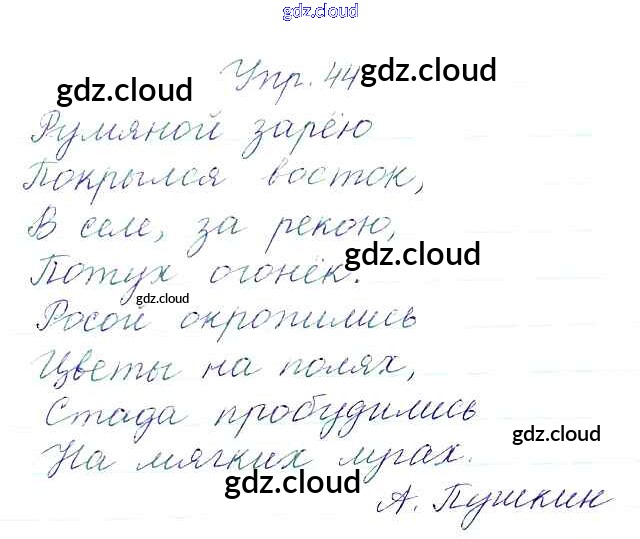 gdz.cloud
Упр. 44
gdz.cloud
gdz.cloud
Румяной зарёю
Покрылся восток,
В селе, за рекою,
gdz.cloud
Потух огонёк.
gdz.cloud
Росой окропились
Цветы на полях,
Стада пробудились
gdz.cloud
На мягких лугах.
gdz.cloud
А. Пушкин